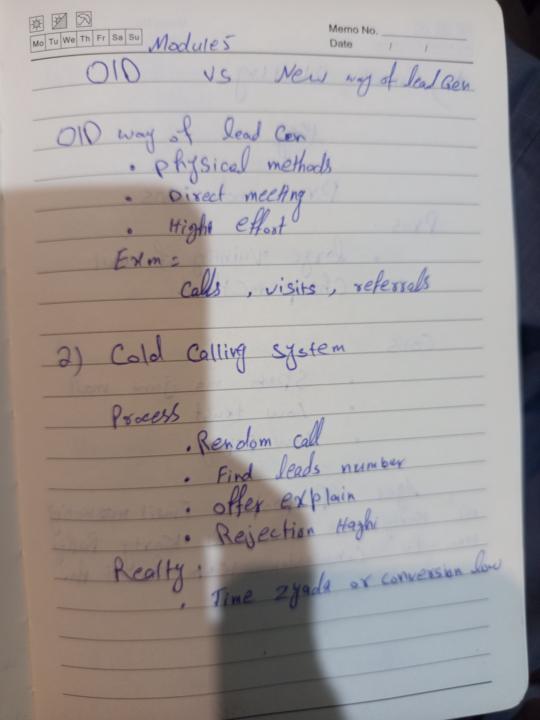 Memo No.
Mo Tu We Th Fr Sa Su
Date / /
Module 5
OlD vs New way of lead Gen
OlD way of lead Gen
• Physical methods
• Direct meeting
• Hight effort
Exm =
Calls , visits , referrals
2) Cold Calling system
Process
• Rendom call
• Find leads number
• offer explain
• Rejection Haghi
Realty :
• Time zyada or conversion low